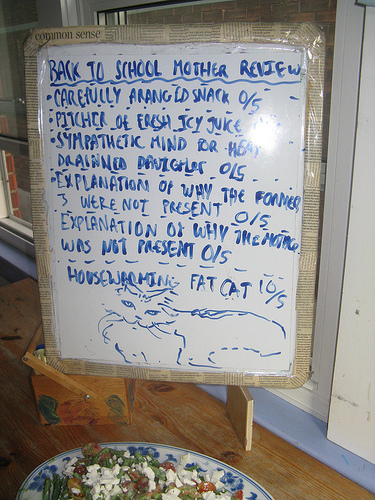 common sense
BACK TO SCHOOL MOTHER REVIEW
• CAREFULLY ARANGID SNACK 0/5
• PITCHER OF FRESH ICY JUICE
• SYMPATHETIC MIND FOR HEAT
DRAINNED DAUGHTER 0/5
• EXPLANATION OF WHY THE FORMER
3 WERE NOT PRESENT 0/5
EXPLANATION OF WHY THE MOTHER
WAS NOT PRESENT 0/5
HOUSEWARMING FAT CAT 10/5